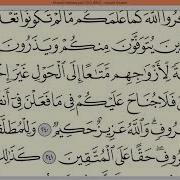 كُرُوا۟ ٱللَّهَ كَمَا عَلَّمَكُم مَّا لَمْ تَكُونُوا۟ تَعْ
ينَ يُتَوَفَّوْنَ مِنكُمْ وَيَذَرُونَ
لِّأَزْوَٰجِهِم مَّتَٰعًا إِلَى ٱلْحَوْلِ غَيْرَ إِخْ
فَلَا جُنَاحَ عَلَيْكُمْ فِى مَا فَعَلْنَ فِىٓ أَنفُ
رُوفٍ وَٱللَّهُ عَزِيزٌ حَكِيمٌ ٢٤٠ وَلِلْمُطَلَّ
رُوفِ حَقًّا عَلَى ٱلْمُتَّقِينَ ٢٤١ كَذَٰلِكَ